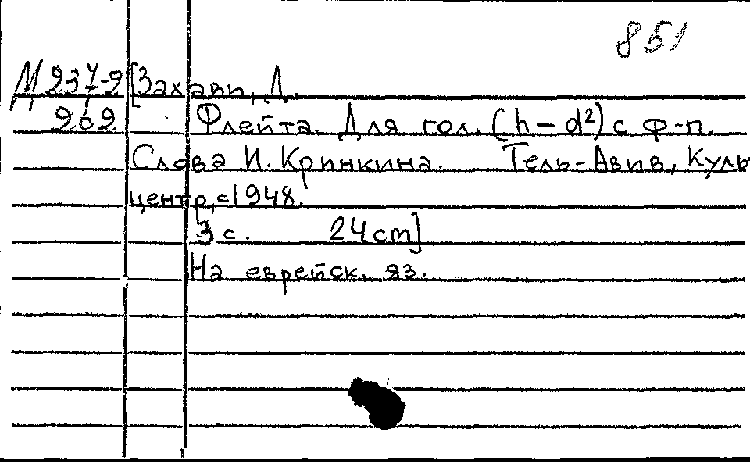 851
М 937-9 [Захави, Д.
969 Флейта. Для гол. (h – d²) с ф-п.
Слова И. Кринкина. Тель-Авив, Куль
центр, c1948.
3 с. 24 cm]
На еврейск. яз.